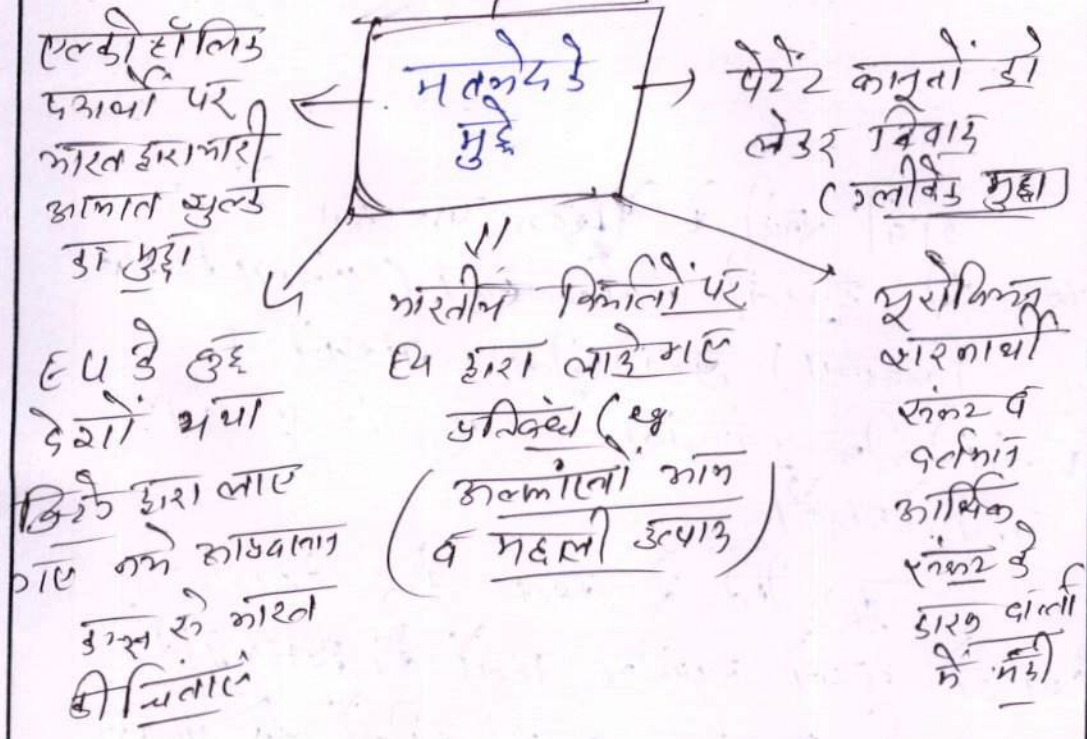 मतभेद के
मुद्दे
एल्कोहॉलिक
पदार्थों पर
भारत द्वारा भारी
आयात शुल्क
का मुद्दा
पेटेंट कानूनों को
लेकर विवाद
(ग्लीवेक मुद्दा)
EU के कुछ
देशों यथा
द्वारा लाए
गए नये आप्रवासन
से भारत
की चिंताएं
भारतीय निर्यातों पर
EU द्वारा लादे गए
प्रतिबंध
(अल्फांसो आम
व मछली उत्पाद)
यूरोपियन
शरणार्थी
संकट व
वर्तमान
आर्थिक
संकट के
कारण वार्ता
में मंदी